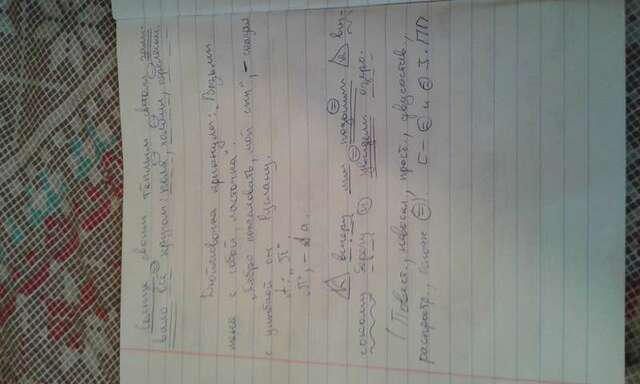 Солнце своим тёплым светом зали-
вало всё кругом: поля, холмы, перелески.
Дюймовочка крикнула: „Возьми
меня с собой, ласточка"
„Добро пожаловать, мой сын", – сказал
с улыбкой он Руслану.
А: „П".
„П", – а.
К вечеру мы подошли к вы-
сокому берегу и увидели озеро.
(Повест., невоскл., прост., двусостав.,
распростр., ослож.